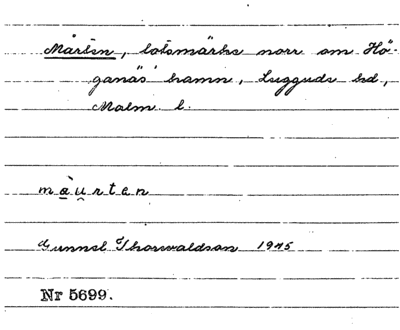 Mårten, lotsmärke norr om Hö-
ganäs hamn, Luggude hd,
Malm. l.
màu̯rten
Gunnel Thorwaldson 1945
Nr 5699.